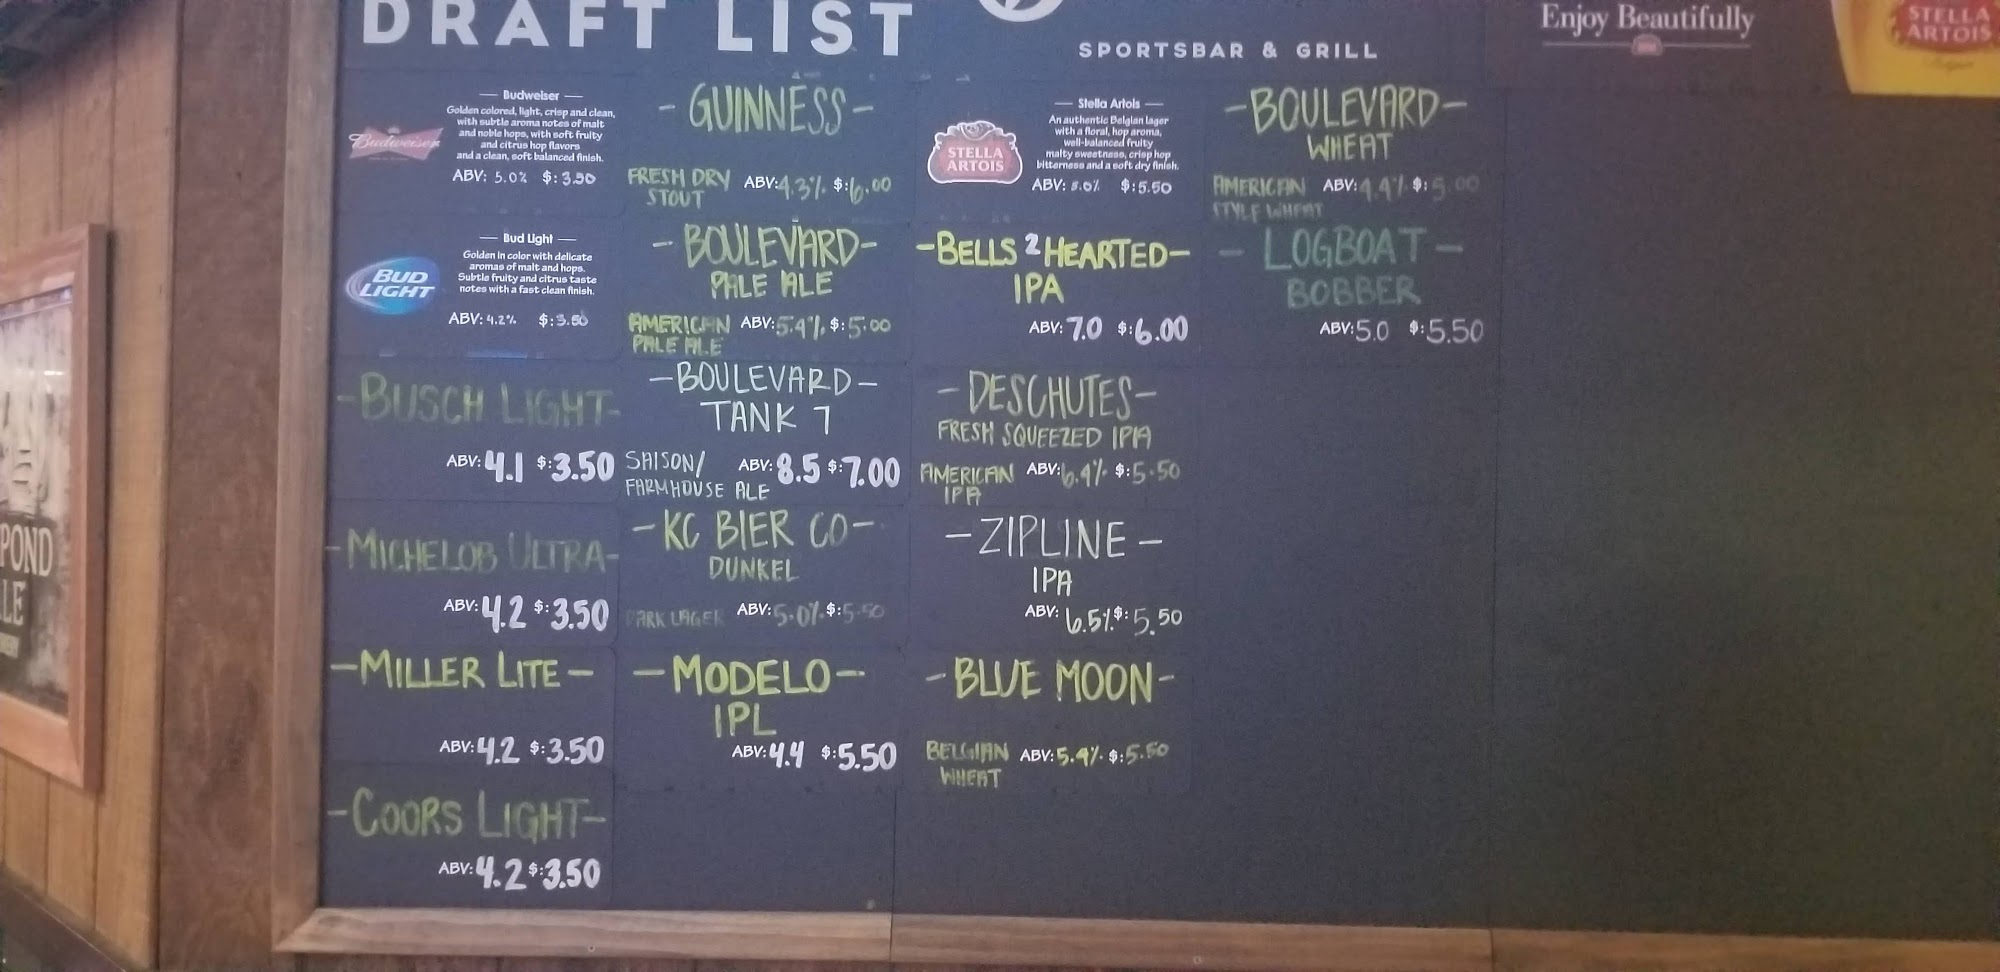 DRAFT LIST
SPORTSBAR & GRILL
Enjoy Beautifully
STELLA
ARTOIS
Budweiser
— Budweiser —
Golden colored, light, crisp and clean,
with subtle aroma notes of malt
and noble hops, with soft fruity
and citrus hop flavors
and a clean, soft balanced finish.
ABV: 5.0% $: 3.50
BUD
LIGHT
— Bud Light —
Golden in color with delicate
aromas of malt and hops.
Subtle fruity and citrus taste
notes with a fast clean finish.
ABV: 4.2% $: 3.50
-BUSCH LIGHT-
ABV: 4.1 $: 3.50
-MICHELOB ULTRA-
ABV: 4.2 $: 3.50
-MILLER LITE-
ABV: 4.2 $: 3.50
-COORS LIGHT-
ABV: 4.2 $: 3.50
-GUINNESS-
FRESH DRY
STOUT
ABV: 4.3% $: 6.00
-BOULEVARD-
PALE ALE
AMERICAN
PALE ALE
ABV: 5.4% $: 5.00
-BOULEVARD-
TANK 7
SAISON/
FARMHOUSE ALE
ABV: 8.5 $: 7.00
-KC BIER CO-
DUNKEL
DARK LAGER
ABV: 5.0% $: 5.50
-MODELO-
IPL
ABV: 4.4 $: 5.50
STELLA
ARTOIS
— Stella Artois —
An authentic Belgian lager
with a floral, hop aroma,
well-balanced fruity
malty sweetness, crisp hop
bitterness and a soft dry finish.
ABV: 5.0% $: 5.50
-BELLS 2 HEARTED-
IPA
ABV: 7.0 $: 6.00
-DESCHUTES-
FRESH SQUEEZED IPA
AMERICAN
IPA
ABV: 6.4% $: 5.50
-ZIPLINE-
IPA
ABV: 6.5% $: 5.50
-BLUE MOON-
BELGIAN
WHEAT
ABV: 5.4% $: 5.50
-BOULEVARD-
WHEAT
AMERICAN
STYLE WHEAT
ABV: 4.4% $: 5.00
-LOGBOAT-
BOBBER
ABV: 5.0 $: 5.50
POND
LE